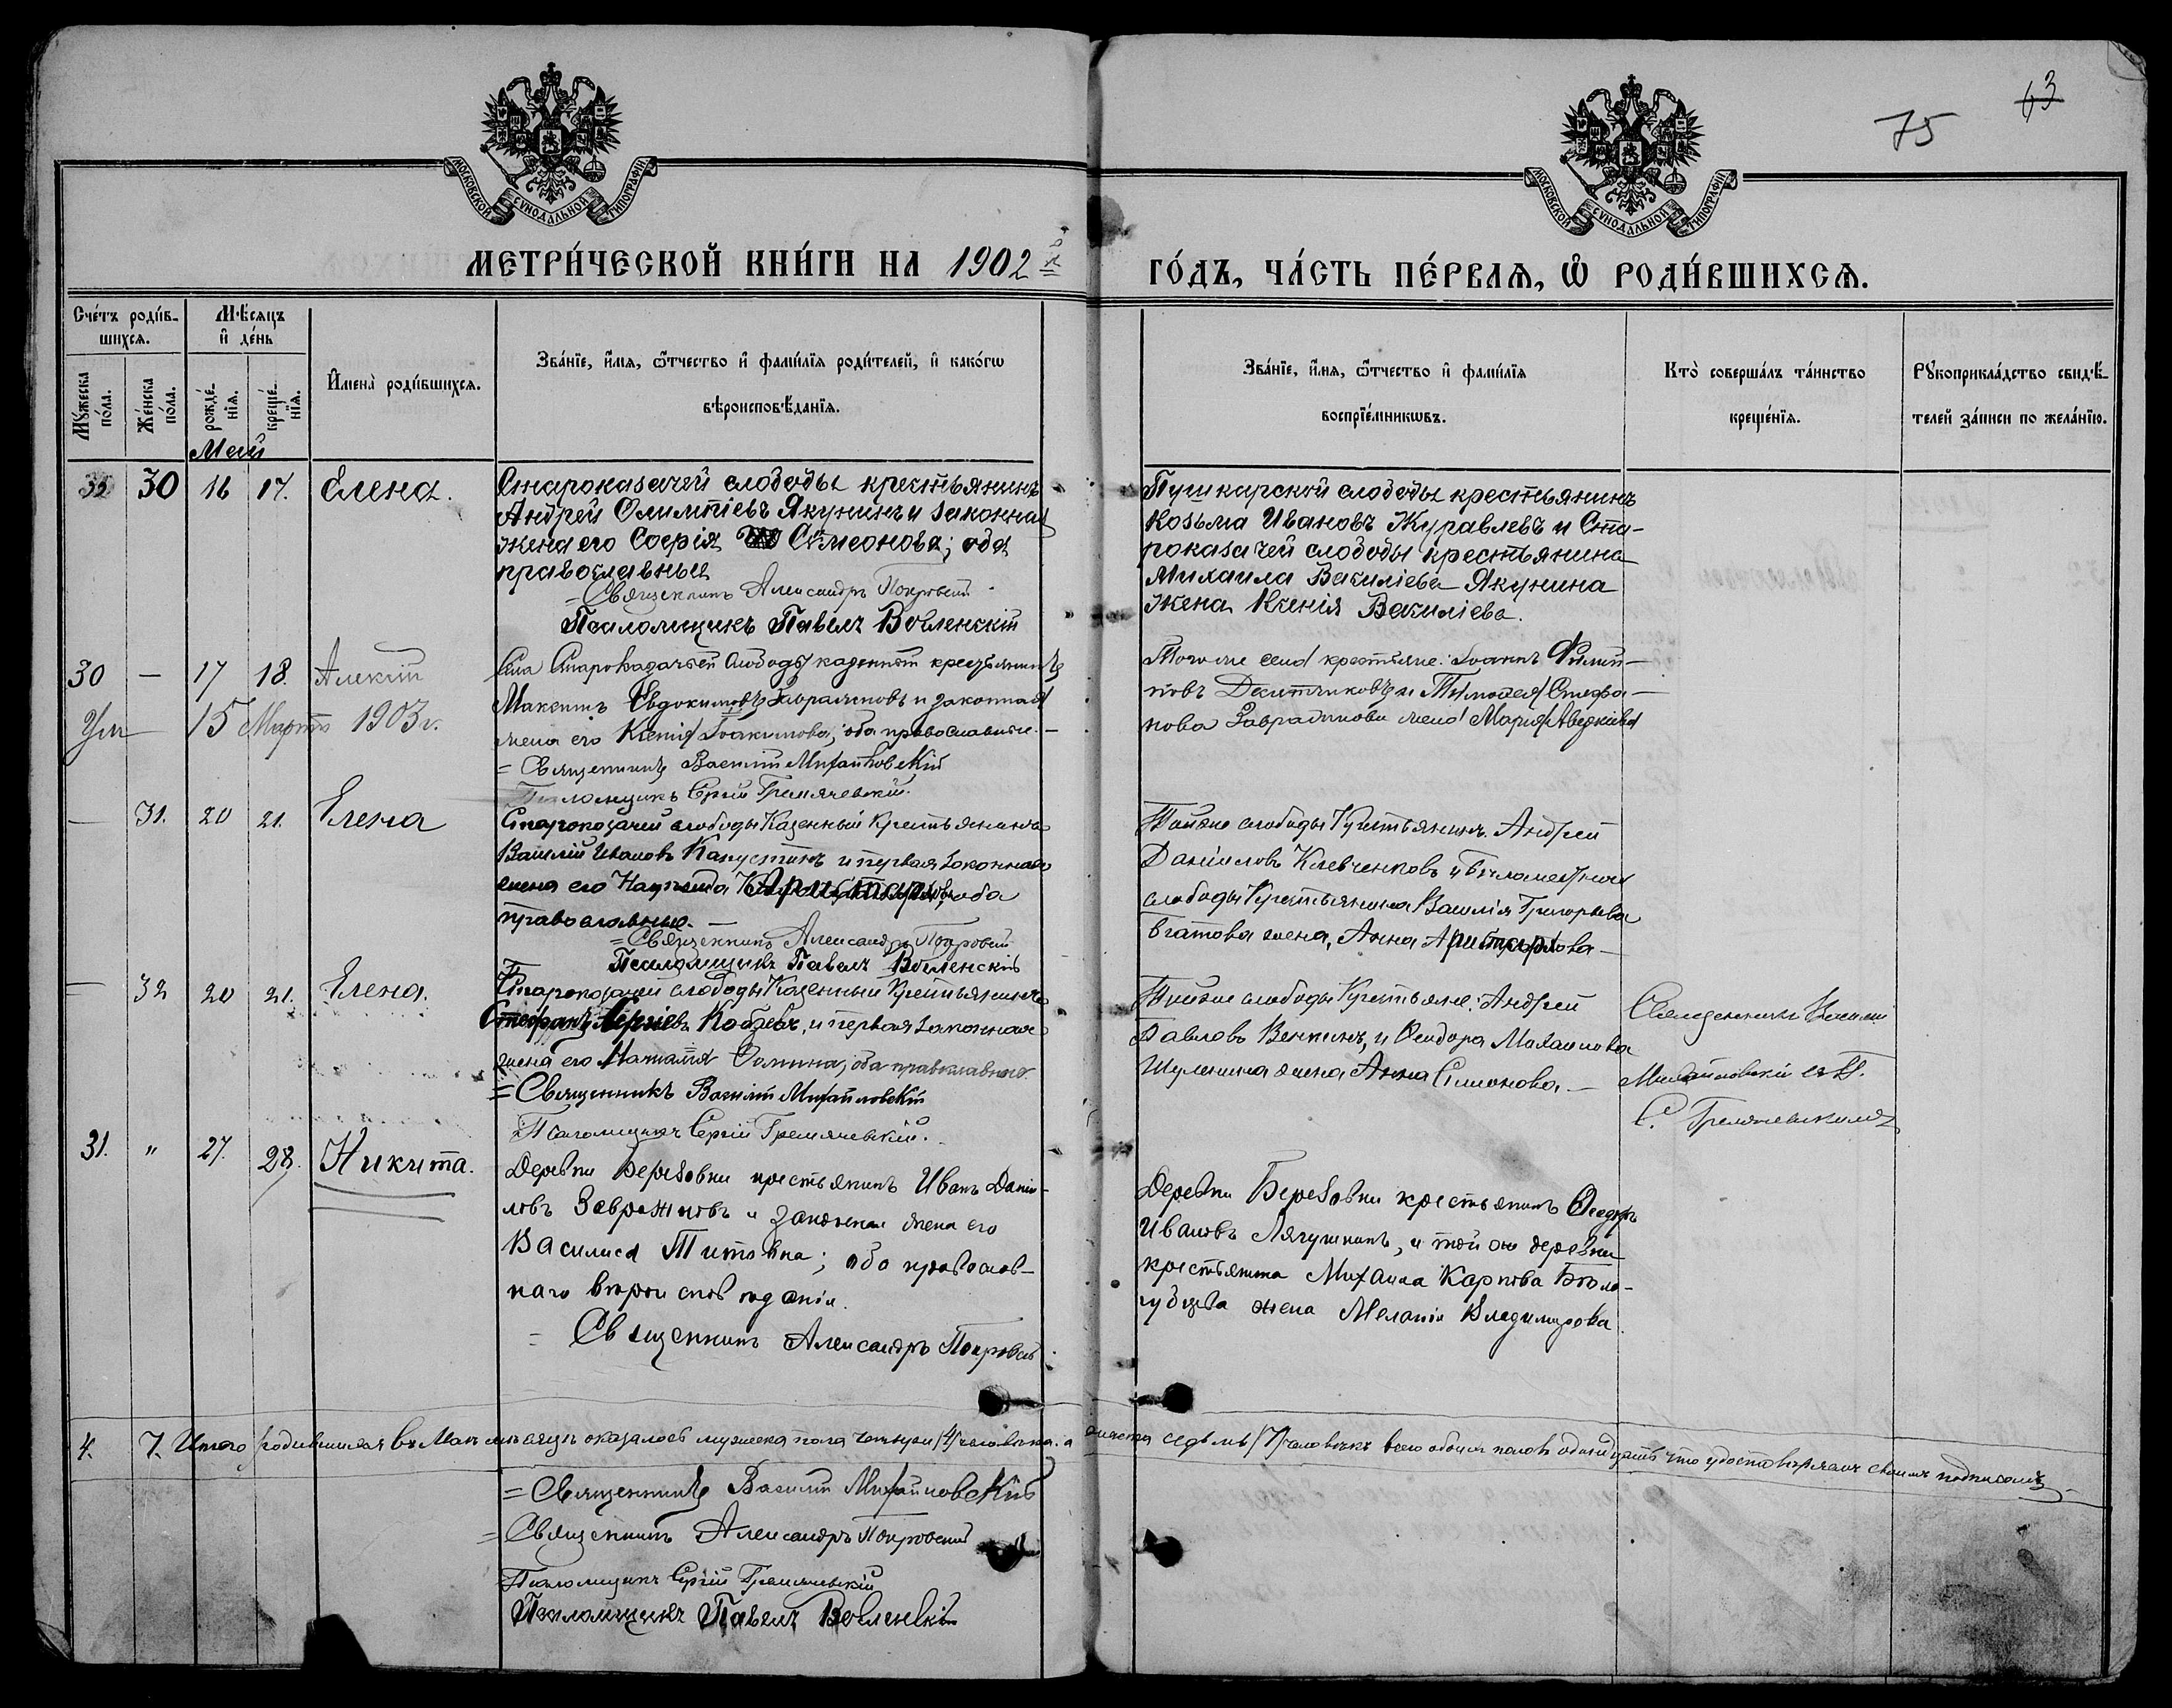 75
63
МОСКОВСКОЙ СѴНОДАЛЬНОЙ ТИПОГРАФІИ
МОСКОВСКОЙ СѴНОДАЛЬНОЙ ТИПОГРАФІИ
МЕТРИ́ЧЕСКОЙ КНИ́ГИ НА 1902 й
ГО́ДЪ, ЧА́СТЬ ПЕ́РВАѦ, Ѽ РОДИ́ВШИХСѦ.
Сче́тъ роди́в-
шихсѧ.
Мѣ́сѧцъ
и҆ де́нь
Мꙋ́жеска
по́ла.
Же́нска
по́ла.
рожде́-
нїѧ.
креще́-
нїѧ.
И҆мена̀ роди́вшихсѧ.
Зва́нїе, и҆́мѧ, ѻ҆́тчество и҆ фами́лїѧ роди́телей, и҆ како́гѡ
вѣроисповѣ́данїѧ.
Зва́нїе, и҆́мѧ, ѻ҆́тчество и҆ фами́лїѧ
воспрїе́мникѡвъ.
Кто̀ соверша́лъ та́инство
креще́нїѧ.
Рꙋкоприкла́дство свидѣ́-
телей за́писи по жела́нїю.
Май
30 16 17. Елена.
Староказачей слободы крестьянинъ
Андрей Олимпіевъ Якунинъ и законная
жена его Софія Симеонова; оба
православные
= Священникъ Александръ Покровскій
Псаломщикъ Павелъ
Пушкарской слободы крестьянинъ
Козьма Ивановъ Журавлевъ и Ста-
роказачей слободы крестьянина
Михаила Василіева Якунина
жена Ксенія Василіева.
30 — 17 18. Алексій
Ум 15 Марта 1903 г.
Села Староказачьей Слободы казенный крестьянинъ
Максимъ Евдокимовъ и законная
жена его Ксенія Іоакимова; оба православные. —
= Священникъ Василій Михайловскій
Псаломщикъ Сергій Гремячевскій.
Того же села крестьяне: Іоаннъ Филип-
повъ и Тимофея Стефа-
нова жена Марія
— 31. 20 21. Елена
Староказачей слободы Казенный Крестьянинъ
Василій Ивановъ Капустинъ и первая законная
жена его оба
православные. —
= Священникъ Александръ Покровскій
Псаломщикъ Павелъ
Тойже слободы Крестьянинъ Андрей
Даніиловъ Клевченковъ и
слободы Крестьянина Василія Григорьева
жена, Анна —
— 32 20 21. Елена.
Староказачей слободы Казенный Крестьянинъ
Стефанъ Сергіевъ и первая законная
жена его Ѳомина, оба православные.
= Священникъ Василій Михайловскій
Псаломщикъ Сергій Гремячевскій.
Тойже слободы Крестьяне: Андрей
Павловъ и Ѳеодора Михаилова
жена Анна Симонова. —
Священникъ Василій
Михайловскій съ П.
С. Гремячевскимъ
31. " 27. 28. Никита.
Деревни Березовки крестьянинъ Иванъ Даніи-
ловъ и законная жена его
Василиса Титовна; оба православ-
наго вѣроисповѣданія.
= Священникъ Александръ Покровскій
Деревни Березовки крестьянинъ Ѳеодоръ
Ивановъ Лягушкинъ, и той же деревни
крестьянина Михаила Карпова Бѣло-
жена Меланія Владимирова.
4. 7. Итого родившихся въ Маѣ мѣсяцѣ оказалось мужеска пола четыре /4/ человѣка, а женска седьмь /7/ человѣкъ всего обоихъ половъ одинадцать что удостовѣряемъ своимъ подписомъ
= Священникъ Василій Михайловскій
= Священникъ Александръ Покровскій
Псаломщикъ Сергій Гремячевскій
Псаломщикъ Павелъ